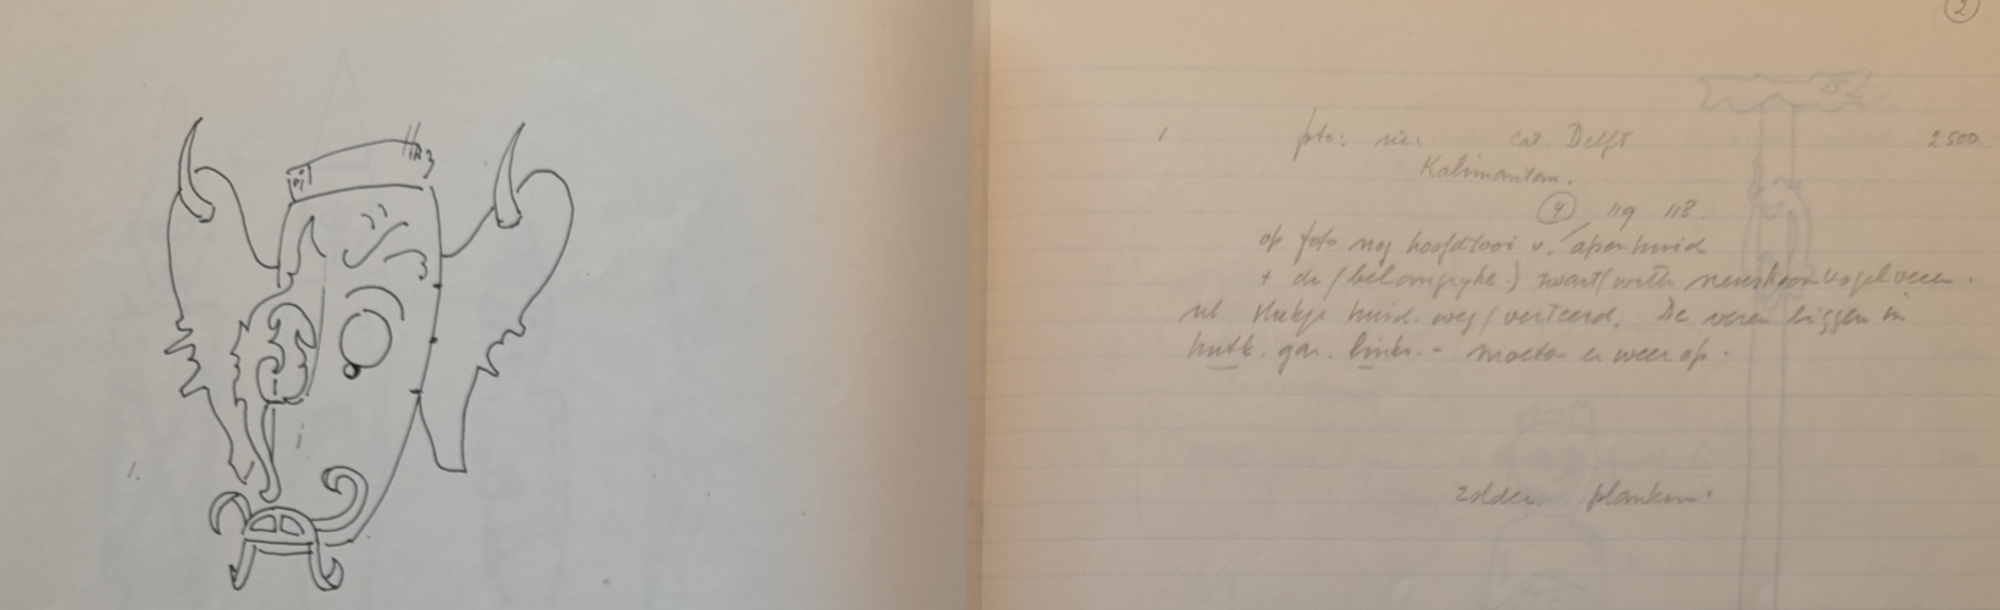 2
1 foto: zie: cat. Delft 2500
Kalimantan.
4 119 118.
op foto nog hoofdtooi v. apenhuid
+ de (belangryke) zwart/witte neushoornvogelveren.
stukje huid. weg/verteerd. De veren liggen in
gar. links. - moeten er weer op.
1.
zolder. planken.